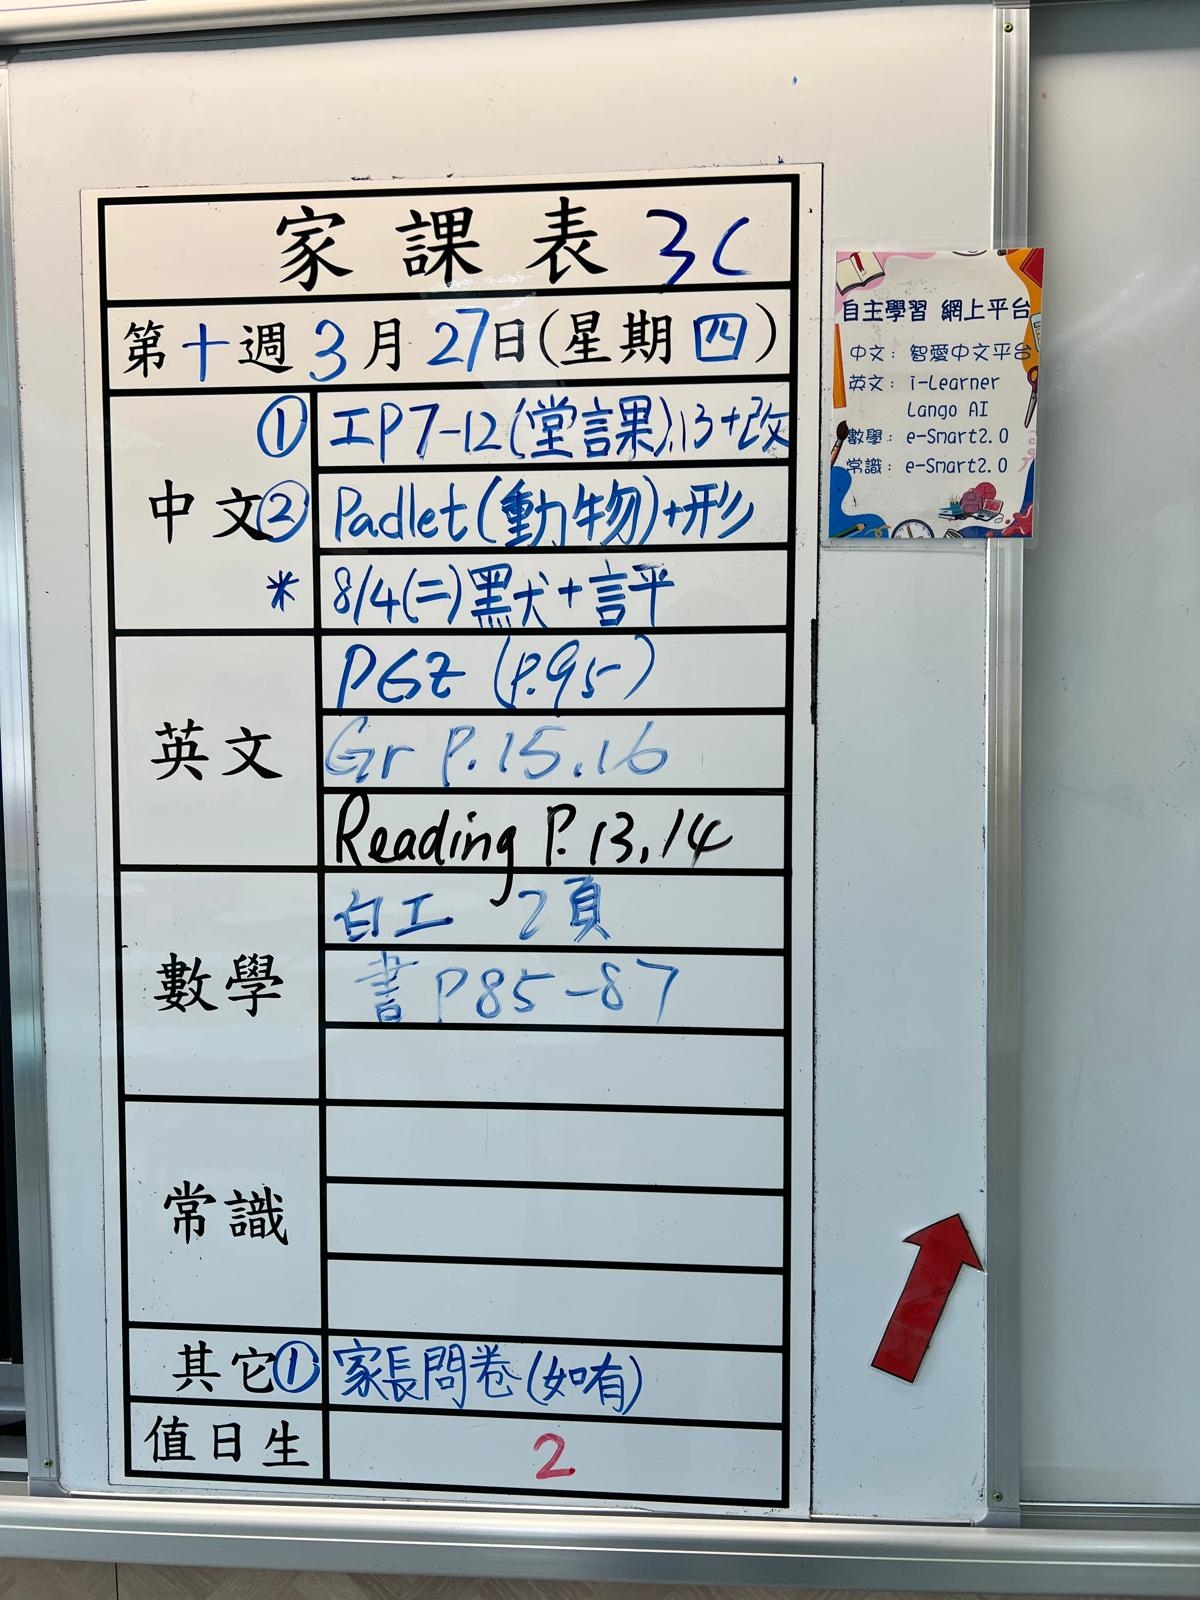 家課表 3C
第十週 3月27日(星期四)
中文
① 工P7-12(堂言課),13+改
② Padlet(動物)+形
* 8/4(二)黑犬+言平
英文
PGZ (P.95)
Gr P.15.16
Reading P.13,14
數學
白工 2頁
書P85-87
常識
其它 ① 家長問卷(如有)
值日生 2
自主學習 網上平台
中文: 智愛中文平台
英文: i-Learner
Lango AI
數學: e-Smart2.0
常識: e-Smart2.0